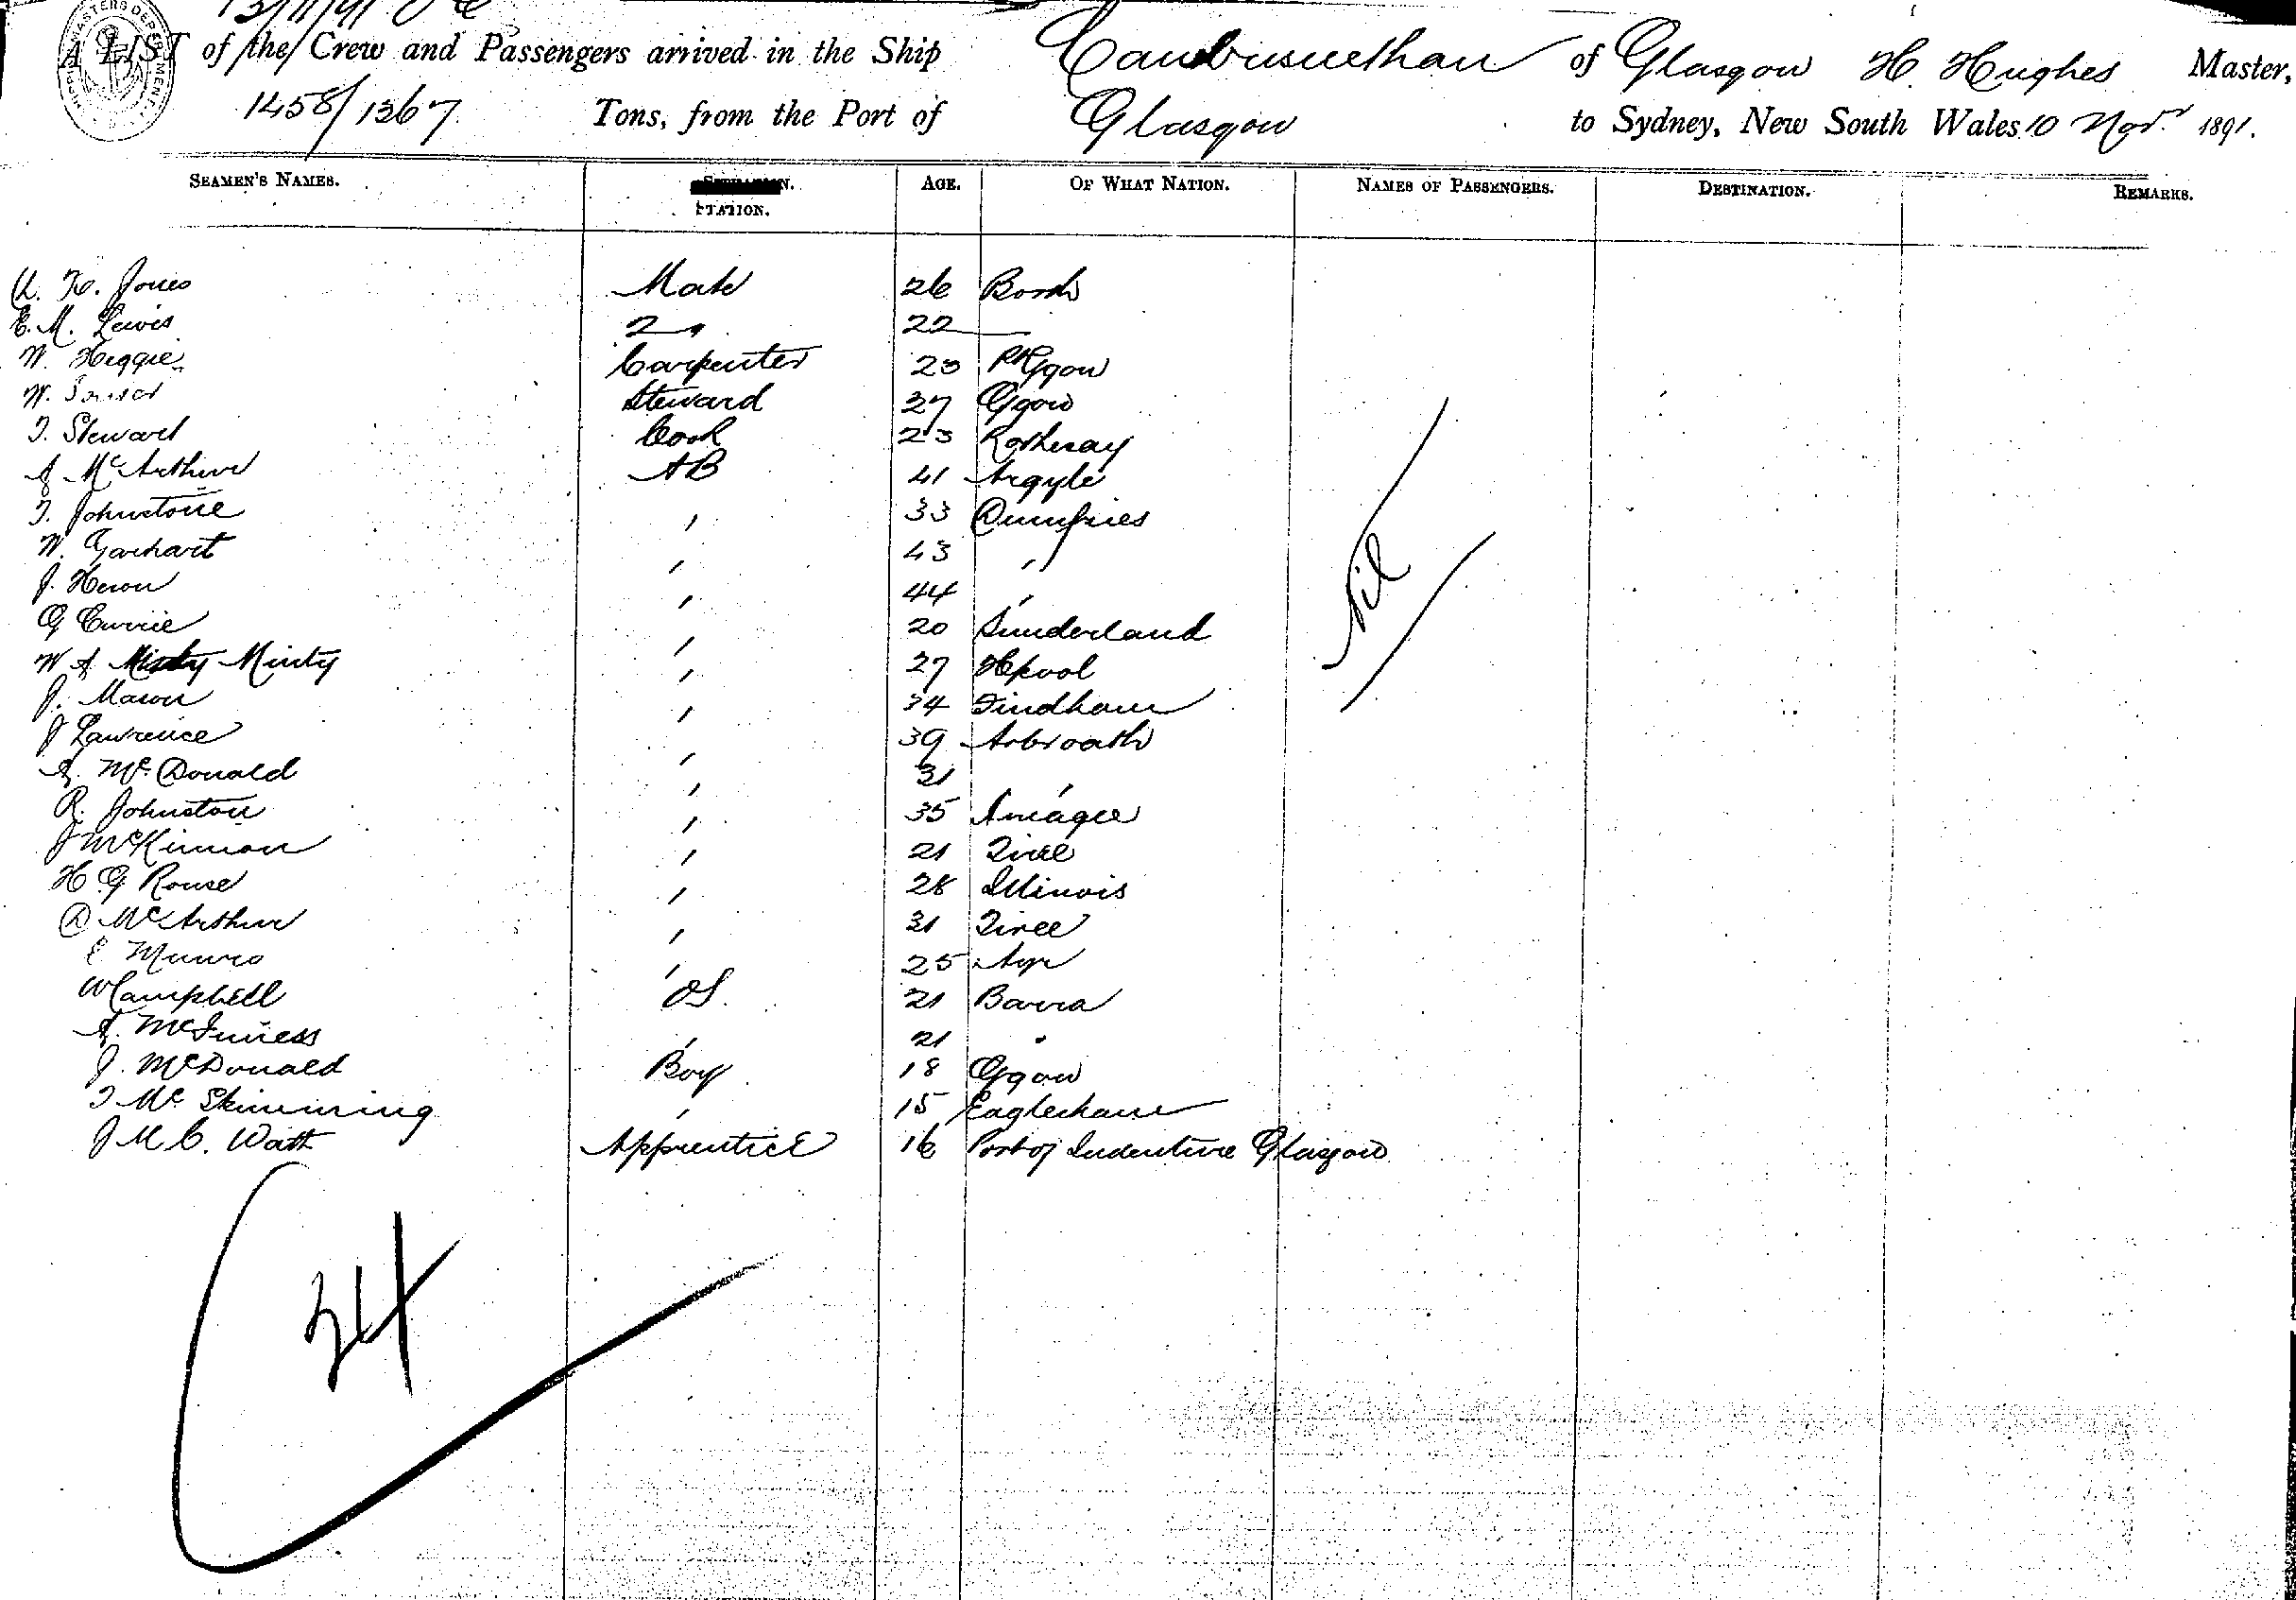 13/11/91
A LIST of the Crew and Passengers arrived in the Ship Cambusnethan of Glasgow H. Hughes Master,
1458/1367 Tons, from the Port of Glasgow to Sydney, New South Wales 10 Nov. 1891.
SEAMEN'S NAMES. STATION. AGE. OF WHAT NATION. NAMES OF PASSENGERS. DESTINATION. REMARKS.
Jones Mate 26 Borth
E. M. Lewis 2 " 22 —
W. Heggie Carpenter 23 Pt Ggow
W. Steward 27 Ggow
T. Stewart Cook 23 Rothesay
A McArthur AB 41 Argyle
T. Johnstone " 33 Dumfries
W. Garhart " 43 "
J. Heron " 44 "
G Currie " 20 Sunderland
W A Minty " 27 Hpool
J. Mason " 34 Findham
J Lawrence " 39 Arbroath
A. McDonald " 31 "
R. Johnston " 35
J McKinnon " 21 Tiree
H G Rouse " 28 Illinois
D McArthur " 31 Tiree
E Munro " 25 Ayr
W Campbell OS. 21 Barra
A. McInness " 21 "
J. McDonald Boy 18 Ggow
T Mc Skimming " 15 Eaglesham
J M C. Watt Apprentice 16 Port of Indenture Glasgow
Nil
24